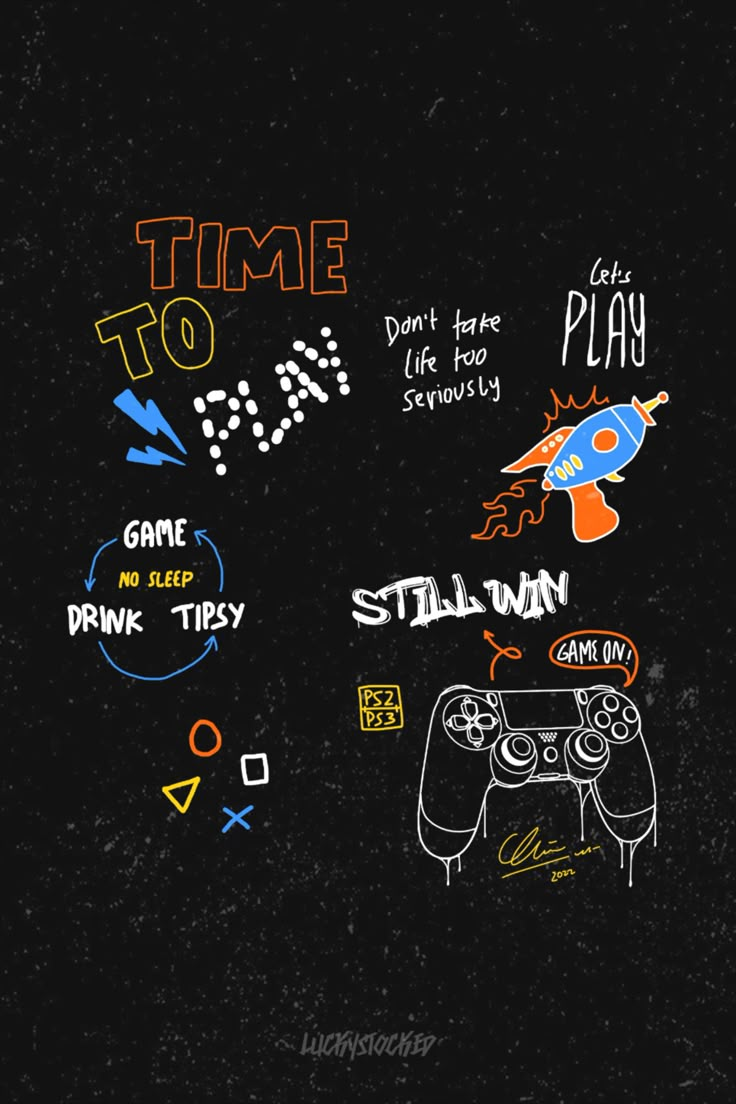 TIME
TO
PLAY
Don't take
life too
seriously
Let's
PLAY
GAME
NO SLEEP
DRINK TIPSY
STILL WIN
GAME ON!
PS2
PS3
2022
LUCKYSTOCKED